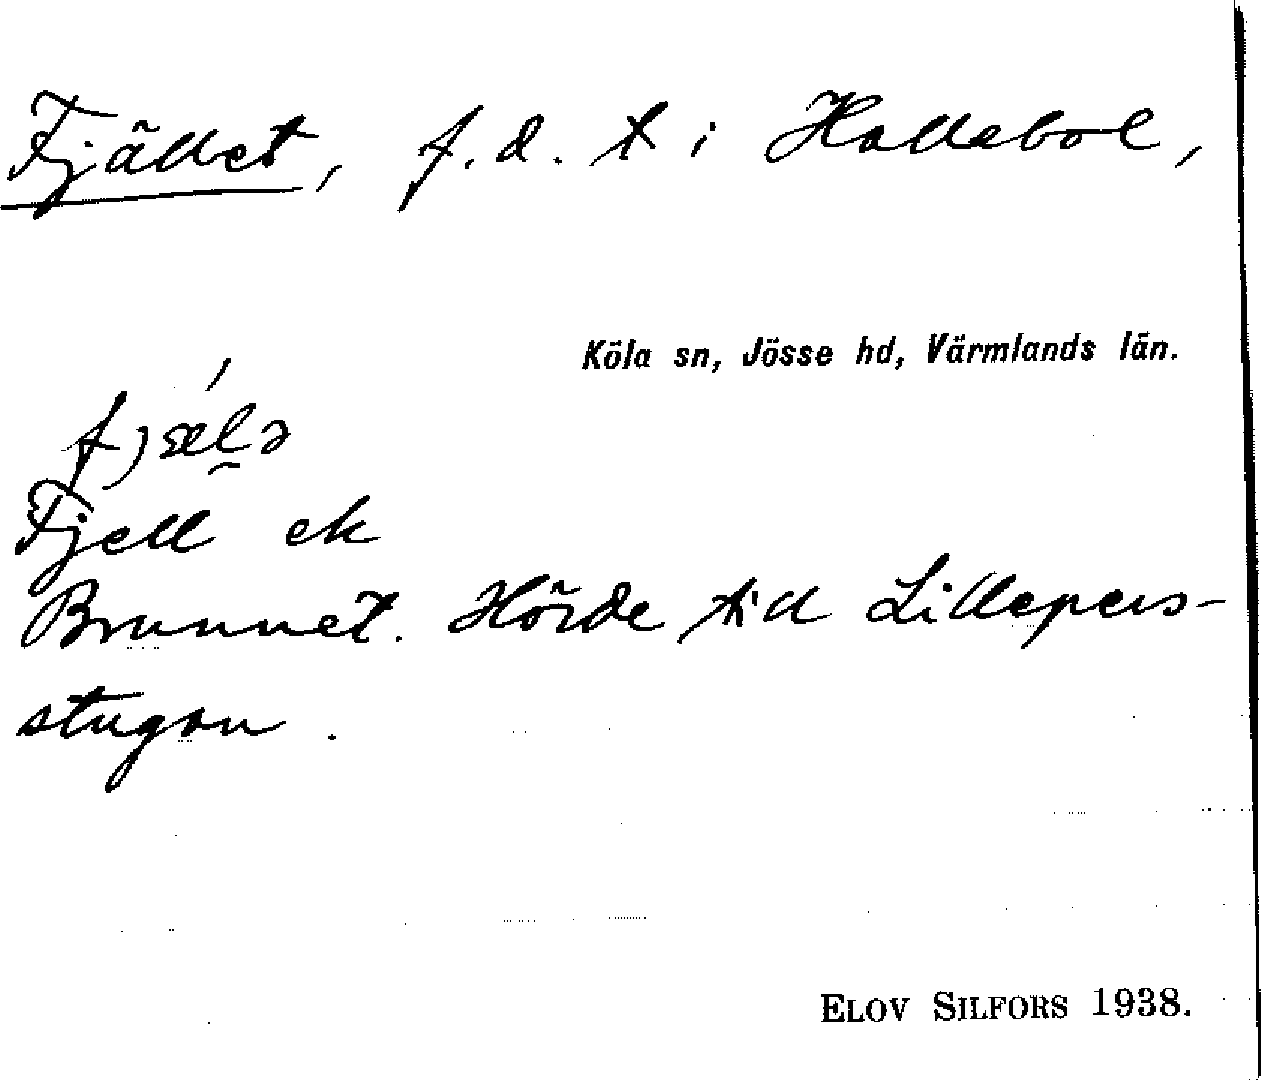 Fjället, f.d. t i Hallebol,
Köla sn, Jösse hd, Värmlands län.
fjælə
Fjell ek
Brunnet. Hörde till Lillepers-
stugan.
ELOV SILFORS 1938.